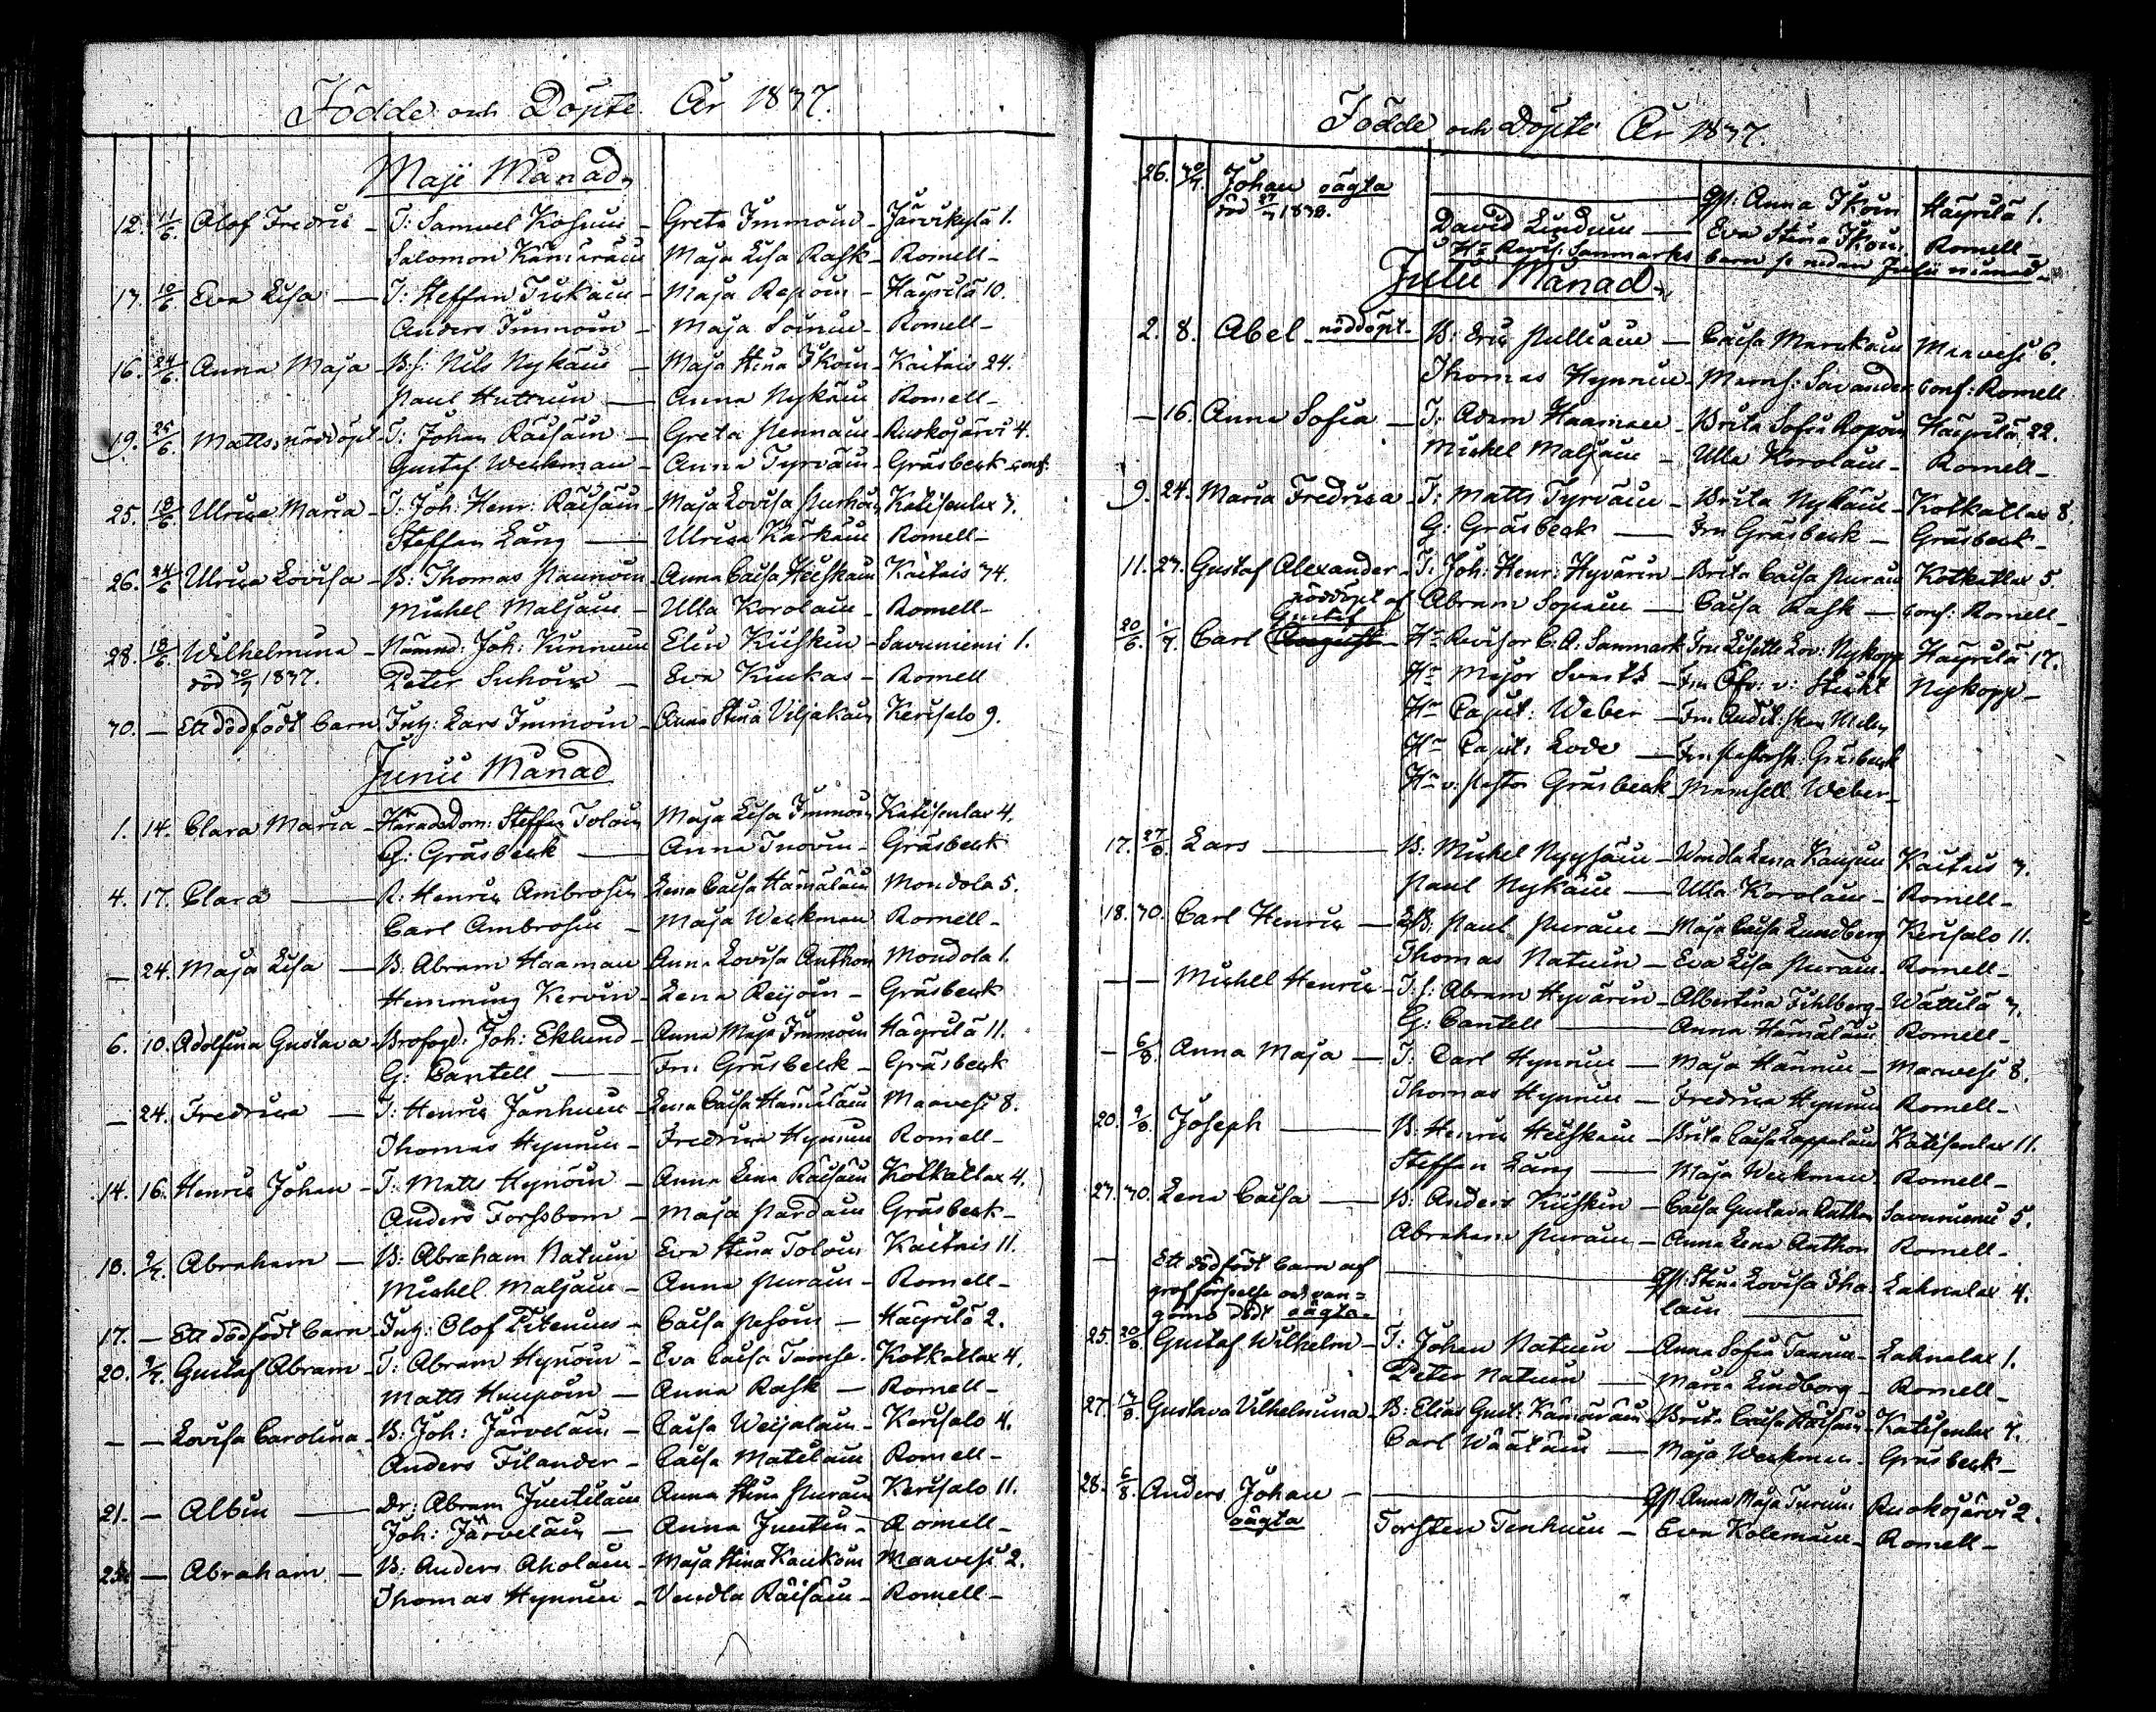 Födde och Döpte År 1837.
Maji Månad
12. 11/6. Olof Fredric - T: Samuel Kosunen - Greta Immonen - Järvikylä 1.
Salomon Kämäräin Maja Lisa Rask - Romell -
17. 10/6 Eva Lisa - T: Steffan Tiikain - Maja Repoin - Häyrilä 10.
Anders Immoin - Maja Soinin - Romell -
16. 24/6. Anna Maja - Bs: Nils Nykäin - Maja Stina Ikoin - Kaitais 24.
Paul Huttuin - Anna Nykäin Romell -
19. 25/6. Matts, nöddöpt - T: Johan Räisäin - Greta Pennain - Ruokojärvi 4.
Gustaf Weckman - Anna Tyrväin - Gräsbeck conf:
25. 18/6 Ulrica Maria - T: Joh: Henr: Räisäin - Maja Lovisa Pushoin Katisenlax 7.
Steffan Lang - Ulrica Kärkäin Romell -
26. 24/6 Ulrica Lovisa - B: Thomas Paunoin - Anna Caisa Heiskain Kaitais 34.
Michel Maljain - Ulla Korolain - Romell -
28. 18/6. Wilhelmina - Nämnd: Joh: Kinnuin Elin Kiiskin - Savuniemi 1.
död 30/7 1837. Peter Suhoin - Eva Kiukas - Romell
30. - Ett dödfödt barn Inh: Lars Immoin - Anna Stina Viljakain Kerisalo 9.
Junii Månad
1. 14. Clara Maria - Häradsdom: Steffan Toloin Maja Lisa Immoin Katisenlax 4.
G: Gräsbeck - Anna Inovin - Gräsbeck
4. 17. Clara - R: Henric Ambrosin Lena Caisa Hämäläin Mondola 5.
Carl Ambrosin - Maja Weckman Romell -
- 24. Maja Lisa - B. Abram Haaman Anna Lovisa Anthon Mondola 1.
Hemming Kervin - Lena Reijoin - Gräsbeck
6. 10. Adolfina Gustava - Brofogd: Joh: Eklund - Anna Maja Immoin Häyrilä 11.
G: Cantell - Fru Gräsbeck - Gräsbeck
- 24. Fredrica - T: Henric Janhuin - Lena Caisa Hämäläin Maavesi 8.
Thomas Hynnin - Fredrica Hynnin Romell -
14. 16. Henric Johan - T: Matts Hynöin - Anna Lena Räisäin Kotkatlax 4.
Anders Forssbom - Maja Pardain Gräsbeck -
18. 9/7. Abraham - B: Abraham Natuin Eva Stina Toloin Kaitais 11.
Michel Maljain - Anna Purain - Romell -
17. - Ett dödfödt barn - Inh: Olof Pitenius - Caisa Pesoin - Häyrilä 2.
20. 9/7. Gustaf Abram - T: Abram Hynöin - Eva Caisa Tamse. Kotkatlax 4.
Matts Huupoin - Anna Rask - Romell -
- - Lovisa Carolina - B: Joh: Järveläin - Caisa Weijalain - Kerisalo 4.
Anders Filander - Caisa Matilain Romell -
21. - Albin - Dr: Abram Juntilain Anna Stina Purain Kerisalo 11.
Joh: Järveläin - Anna Juntin - Romell -
25. - Abraham - B: Anders Aholain - Maja Stina Kaukoin Maavesi 2.
Thomas Hynnin - Vendla Räisäin - Romell -
Födde och Döpte År 1837.
26. 30/7. Johan oägta - Qp: Anna Ikoin Häyrilä 1.
död 1838. David Linduin - Eva Stina Ikoin Romell -
Hr Revis: Sanmarks barn se nedan Julii månad -
Julii Månad
2. 8. Abel - nöddöpt - B: Eric Pulliain - Caisa Marckain Maavesi 6.
Thomas Hynnin - Mams: Savander conf: Romell
- 16. Anna Sofia - T: Adam Haaman - Brita Sofia Repoin Häyrilä 22.
Michel Maljain - Ulla Korolain - Romell -
9. 24. Maria Fredrica - T: Matts Tyrväin - Brita Nykäin - Kotkatlax 8.
G: Gräsbeck - Fru Gräsbeck - Gräsbeck -
11. 27. Gustaf Alexander - T: Joh: Henr: Hyvärin - Brita Caisa Purain Kotkatlax 5.
nöddöpt af Abram Sopain - Caisa Rask - conf: Romell -
Gustaf
20/6. 1/7. Carl August - Hr Revisor C. A: Sanmark Fru Lisette Lov: Nykopp Häyrilä 17.
Hr Major Svartz - Nykopp -
Hr Capit: Weber - Fru Weber
Hr Capit: Lode - Fru Gräsbeck
Hr v. Pastor Gräsbeck - Mamsell Weber -
17. 27/8. Lars - B: Michel Nyyssöin - Vendla Lena Kaupin Kaitais 7.
Paul Nykäin - Ulla Korolain - Romell -
18. 30. Carl Henric - B: Paul Purain - Maja Caisa Lundberg Kerisalo 11.
Thomas Natuin - Eva Lisa Purain - Romell -
- - Michel Henric - T.s: Abram Hyvärin - Albertina Fihlberg - Wättilä 7.
G: Cantell - Anna Hämäläin - Romell -
- 6/8. Anna Maja - T: Carl Hynnin - Maja Hännin - Maavesi 8.
Thomas Hynnin - Fredrica Hynnin Romell -
20. 9/8. Joseph - B. Henric Heiskain - Brita Caisa Lappalain Katisenlax 11.
Steffan Lang - Maja Weckman - Romell -
27. 30. Lena Caisa - B. Anders Kiiskin - Caisa Gustava Anthon Savuniemi 5.
Abraham Purain - Anna Lena Anthon Romell -
- Ett dödfödt barn af - Qp: Stina Lovisa Iha- Lahnalax 4.
lain
oägta -
25. 20/8. Gustaf Wilhelm - T: Johan Natuin - Anna Sofia Tannin - Lahnalax 1.
Peter Natuin - Maria Lindborg - Romell -
27. Gustava Vilhelmina - B: Elias Gust: Kämäräin - Brita Caisa Räisäin - Katisenlax 7.
Carl Wäätäin - Maja Weckman - Gräsbeck -
28. 6/8. Anders Johan - Qp. Anna Maja Turuin Ruokojärvi 2.
oägta Torsten Tenhuin - Eva Kolemain - Romell -